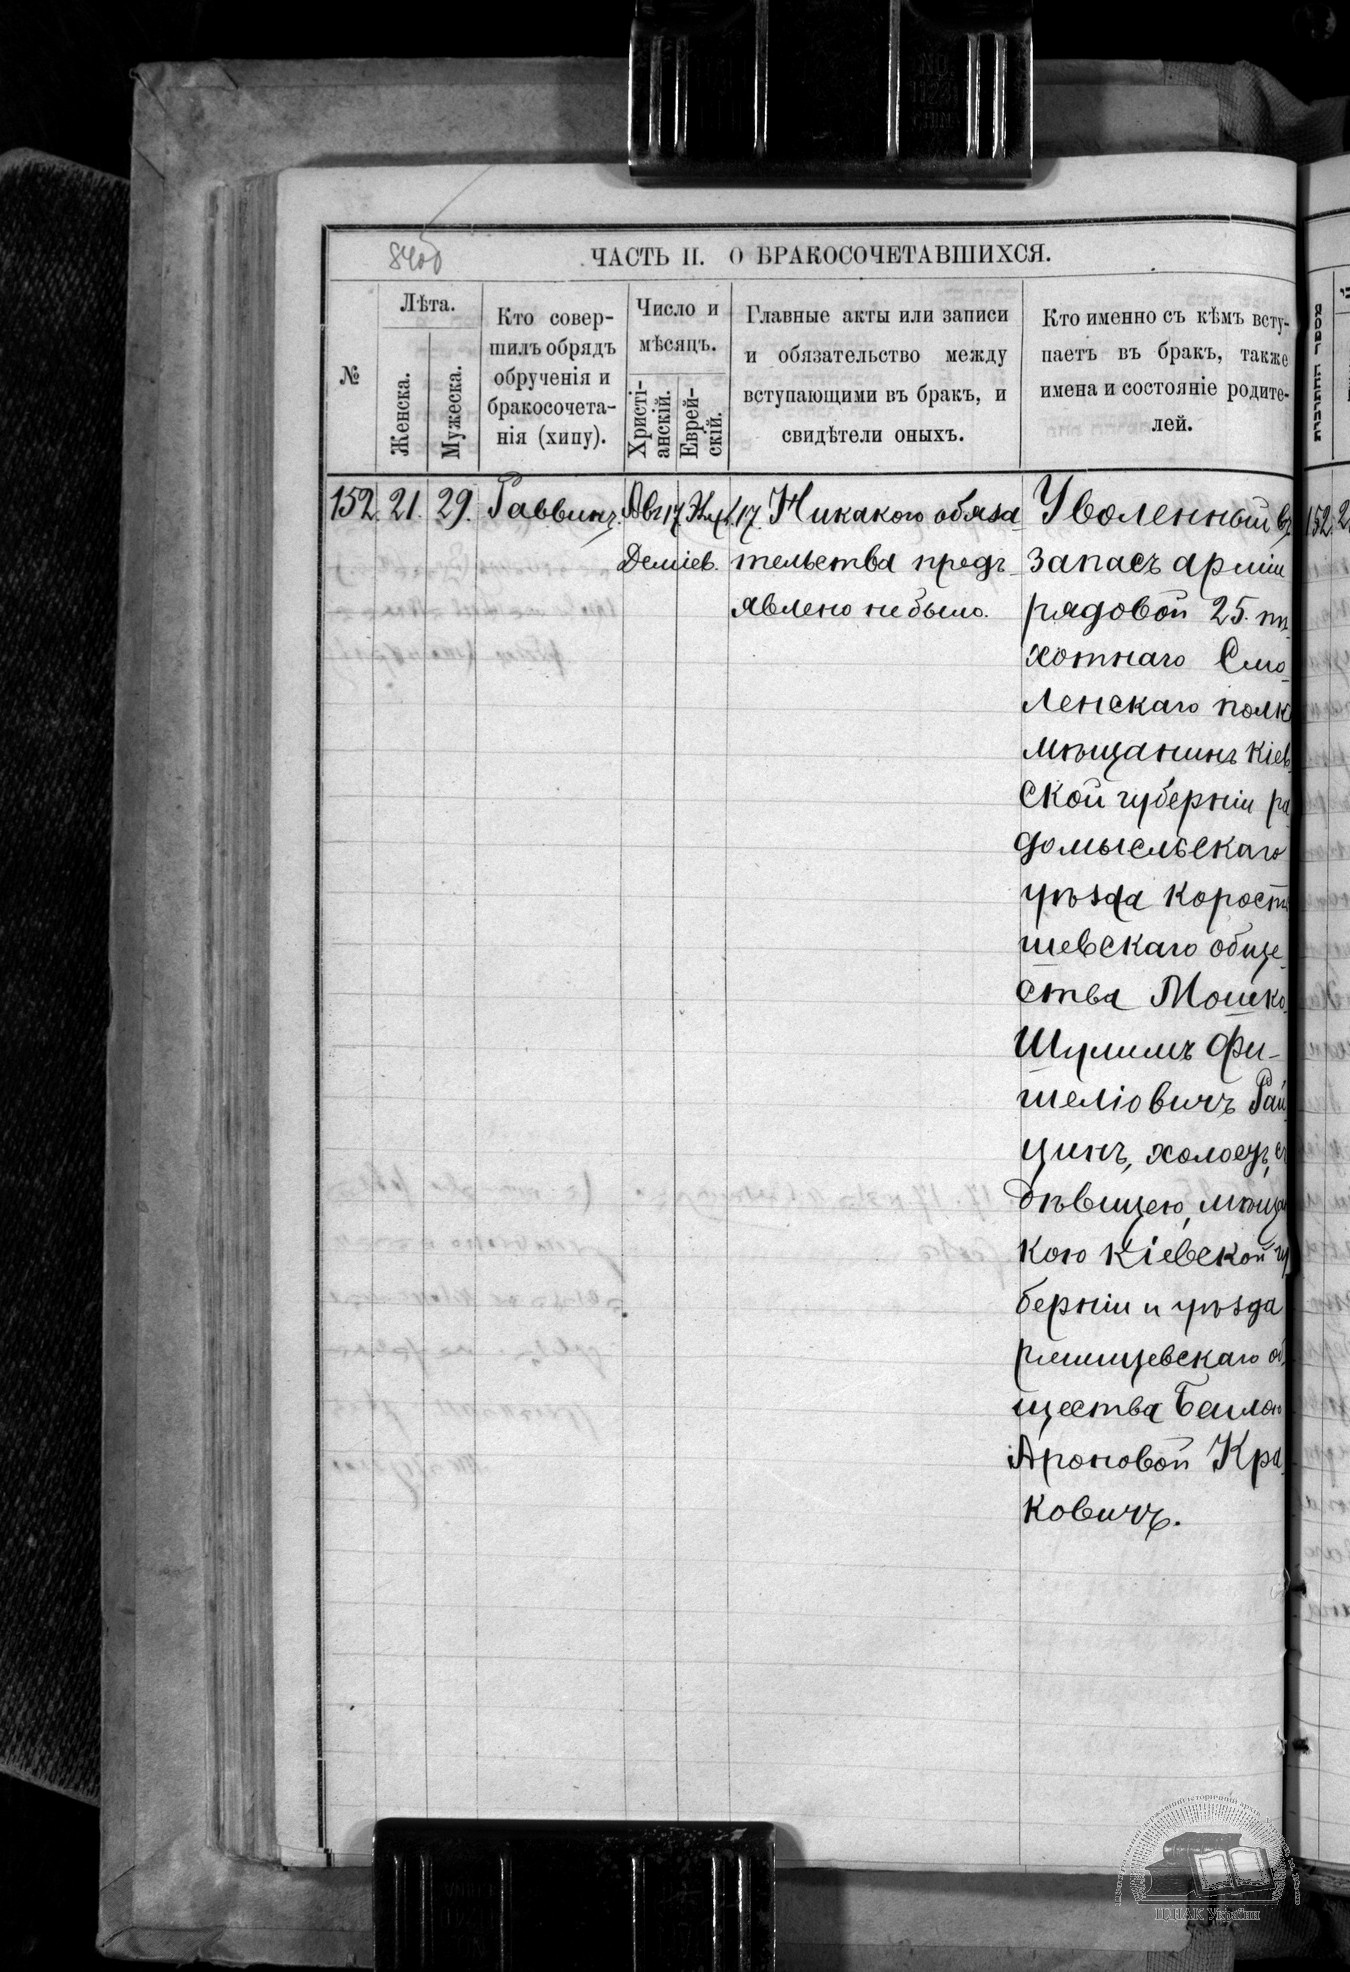 84об
ЧАСТЬ II. О БРАКОСОЧЕТАВШИХСЯ.
№
Лѣта.
Женска.
Мужеска.
Кто совер-
шилъ обрядъ
обрученія и
бракосочета-
нія (хипу).
Число и
мѣсяцъ.
Христі-
анскій.
Еврей-
скій.
Главные акты или записи
и обязательство между
вступающими въ бракъ, и
свидѣтели оныхъ.
Кто именно съ кѣмъ всту-
паетъ въ бракъ, также
имена и состояніе родите-
лей.
152. 21. 29. Раввинъ. Авг. 17 17. Никакого обяза-
Деміев. тельства предъ-
явлено не было.
Уволенный въ
запасъ арміи
рядовой 25. пѣ-
хотнаго Смо-
ленскаго полк
мѣщанинъ Кіев-
ской губерніи ра-
домысльскаго
уѣзда корост
шевскаго обще-
ства Мошко-
Шулимъ Фи-
шеліовичъ Рай
цинъ, холост, съ
дѣвицею, мѣщан
кою Кіевской гу
берніи и уѣзда
ржищевскаго об
щества Бейлою
Ароновой Кра-
ковичъ.
152. 2
ЦДІАК України